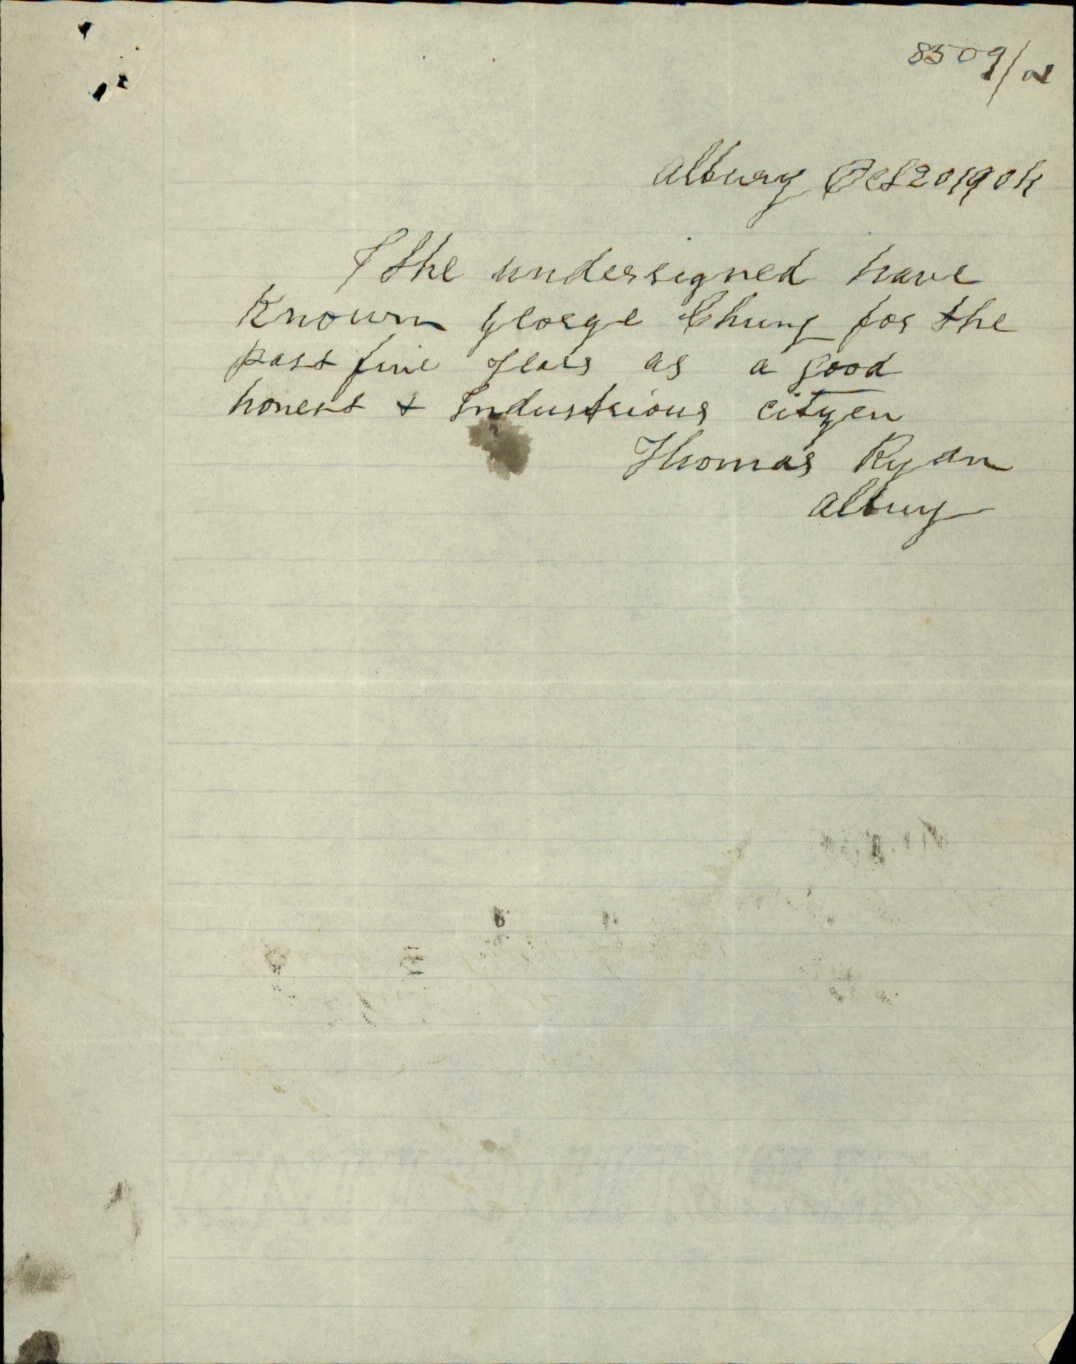 8509/01
Albury Oct 20 1901
I the undersigned have
Known George Chung for the
past five years as a good
honest & Industrious cityen
Thomas Ryan
Albury